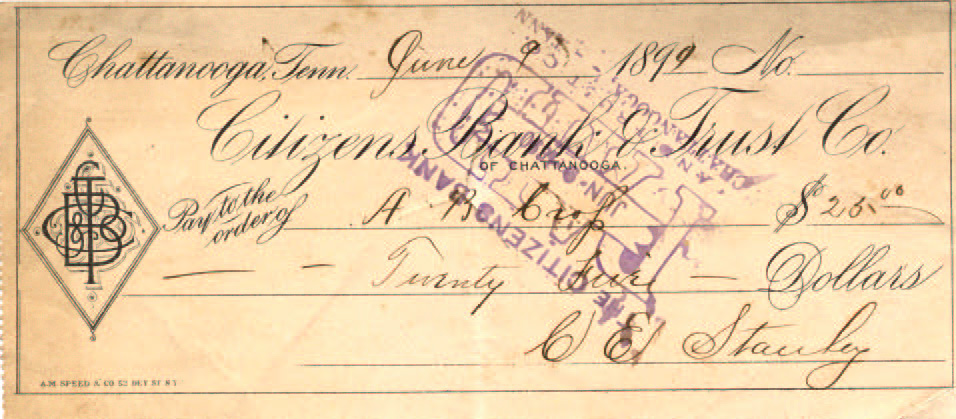 Chattanooga, Tenn. June 9 1899 No.
Citizens Bank & Trust Co.
OF CHATTANOOGA.
Pay to the order of A B $ 25.00
Twenty Five Dollars
C E Stanley
THE CITIZENS BANK
PAID
A.M. SPEED & CO 52 DEY ST N Y